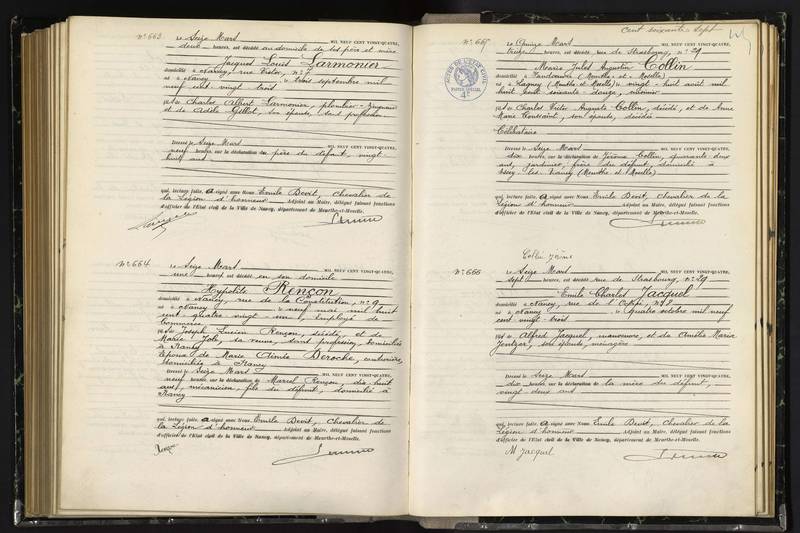 N° 663. Le Seize Mars MIL NEUF CENT VINGT-QUATRE,
deux heures, est décédé au domicile de ses père et mère
Jacques Louis Larmonier
domicilié à Nancy, rue n° 7
né à Nancy le trois septembre mil
neuf cent vingt trois
fils de Charles Albert Larmonier, plombier-zingueur
et de Adèle Gillot, son épouse, sans profession
Dressé le Seize Mars MIL NEUF CENT VINGT-QUATRE,
neuf heures sur la déclaration du père du défunt, vingt
huit ans
qui, lecture faite, a signé avec Nous Emile Devit, Chevalier de
la Légion d'honneur Adjoint au Maire, délégué faisant fonctions
d'officier de l'Etat civil de la Ville de Nancy, département de Meurthe-et-Moselle.
N° 664 Le Seize Mars MIL NEUF CENT VINGT-QUATRE,
une heure est décédé en son domicile
Hypolite Rençon
domicilié à Nancy, rue de la Constitution, n° 9
né à Nancy le neuf mai mil huit
cent quatre vingt un, employé de
Commerce
fils de Joseph Lucien Rençon, décédé, et de
Marie Joly, sa veuve, sans profession, domiciliée
à Nancy
Epoux de Marie Aimée Deroche,
domiciliée à Nancy
Dressé le Seize Mars MIL NEUF CENT VINGT-QUATRE,
neuf heures sur la déclaration de Marcel Rençon, dix huit
ans, mécanicien, fils du défunt, domicilié à
Nancy
qui, lecture faite, a signé avec Nous Emile Devit, Chevalier de
la Légion d'honneur Adjoint au Maire, délégué faisant fonctions
d'officier de l'Etat civil de la Ville de Nancy, département de Meurthe-et-Moselle.
Rençon
Cent soixante-sept
N° 665 Le Quinze Mars MIL NEUF CENT VINGT-QUATRE,
treize heures, est décédé rue de Strasbourg, n° 29
Marie Jules Augustin Collin
domicilié à Vandoeuvre (Meurthe-et-Moselle)
né à Lagney (Meurthe et Moselle) le vingt-huit août mil
huit cent soixante-douze,
fils de Charles Victor Auguste Collin, décédé, et de Anne
Marie Toussaint, son épouse, décédée
Célibataire
Dressé le Seize Mars MIL NEUF CENT VINGT-QUATRE,
dix heures sur la déclaration de Jérôme Collin, quarante-deux
ans, jardinier, frère du défunt, domicilié à
Essey-les-Nancy (Meurthe et Moselle)
qui, lecture faite, a signé avec Nous Emile Devit, Chevalier de la
Légion d'honneur Adjoint au Maire, délégué faisant fonctions
d'officier de l'Etat civil de la Ville de Nancy, département de Meurthe-et-Moselle.
Collin Jérôme
N° 666 Le Seize Mars MIL NEUF CENT VINGT-QUATRE,
sept heures, est décédé rue de Strasbourg, n° 29
Emile Charles Jacquel
domicilié à Nancy, rue de
né à Nancy le quatre octobre mil neuf
cent vingt-trois
fils de Alfred Jacquel, manoeuvre, et de Amélie Maria
Jentzer, son épouse, ménagère
Dressé le Seize Mars MIL NEUF CENT VINGT-QUATRE,
dix heures sur la déclaration de la mère du défunt,
vingt-deux ans
qui, lecture faite, a signé avec Nous Emile Devit, Chevalier de la
Légion d'honneur Adjoint au Maire, délégué faisant fonctions
d'officier de l'Etat civil de la Ville de Nancy, département de Meurthe-et-Moselle.
M Jacquel